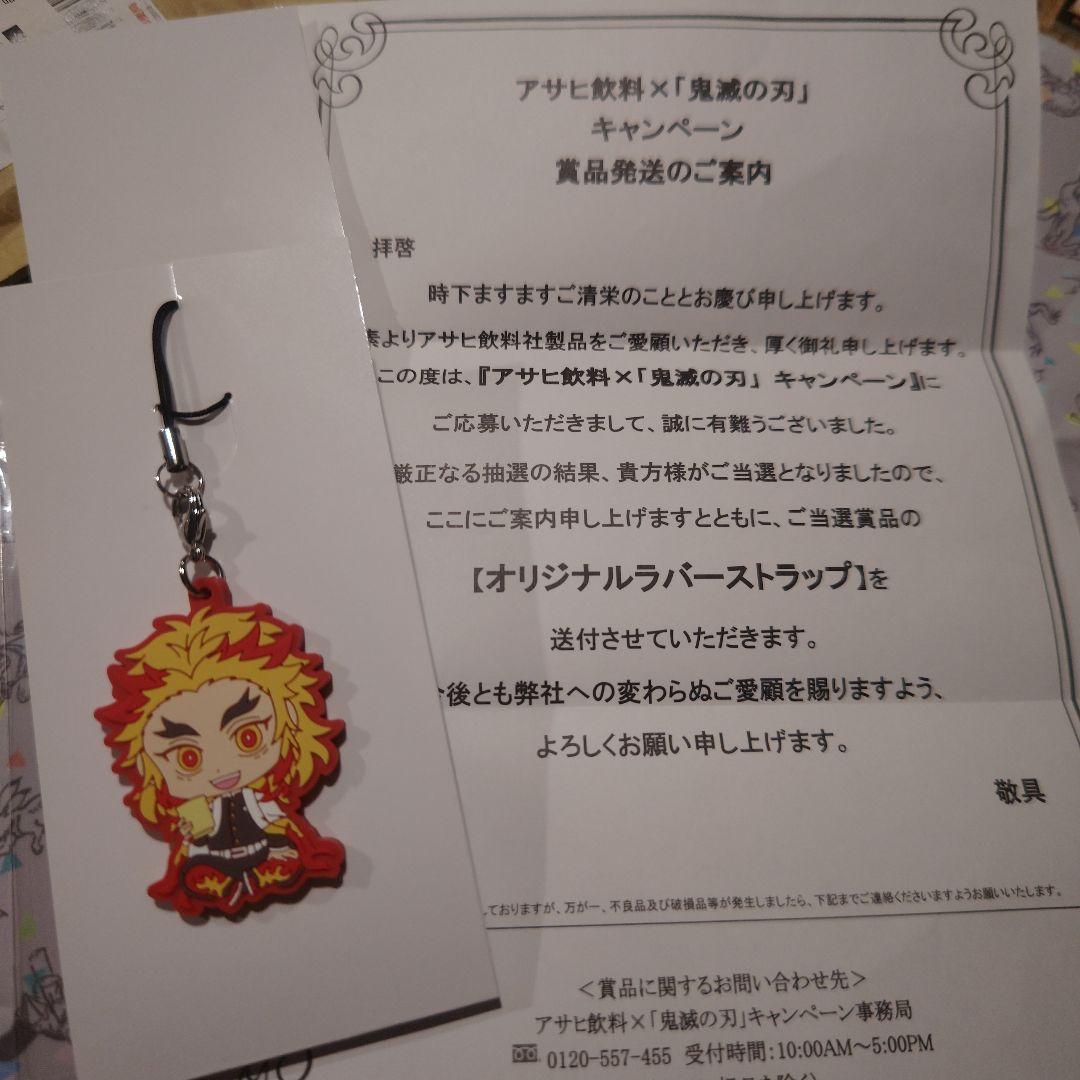 アサヒ飲料×「鬼滅の刃」
キャンペーン
賞品発送のご案内
拝啓
時下ますますご清栄のこととお慶び申し上げます。
素よりアサヒ飲料社製品をご愛顧いただき、厚く御礼申し上げます。
この度は、『アサヒ飲料×「鬼滅の刃」 キャンペーン』に
ご応募いただきまして、誠に有難うございました。
厳正なる抽選の結果、貴方様がご当選となりましたので、
ここにご案内申し上げますとともに、ご当選賞品の
【オリジナルラバーストラップ】を
送付させていただきます。
後とも弊社への変わらぬご愛顧を賜りますよう、
よろしくお願い申し上げます。
敬具
ておりますが、万が一、不良品及び破損品等が発生しましたら、下記までご連絡くださいますようお願いいたします。
<賞品に関するお問い合わせ先>
アサヒ飲料×「鬼滅の刃」キャンペーン事務局
0120-557-455 受付時間:10:00AM～5:00PM